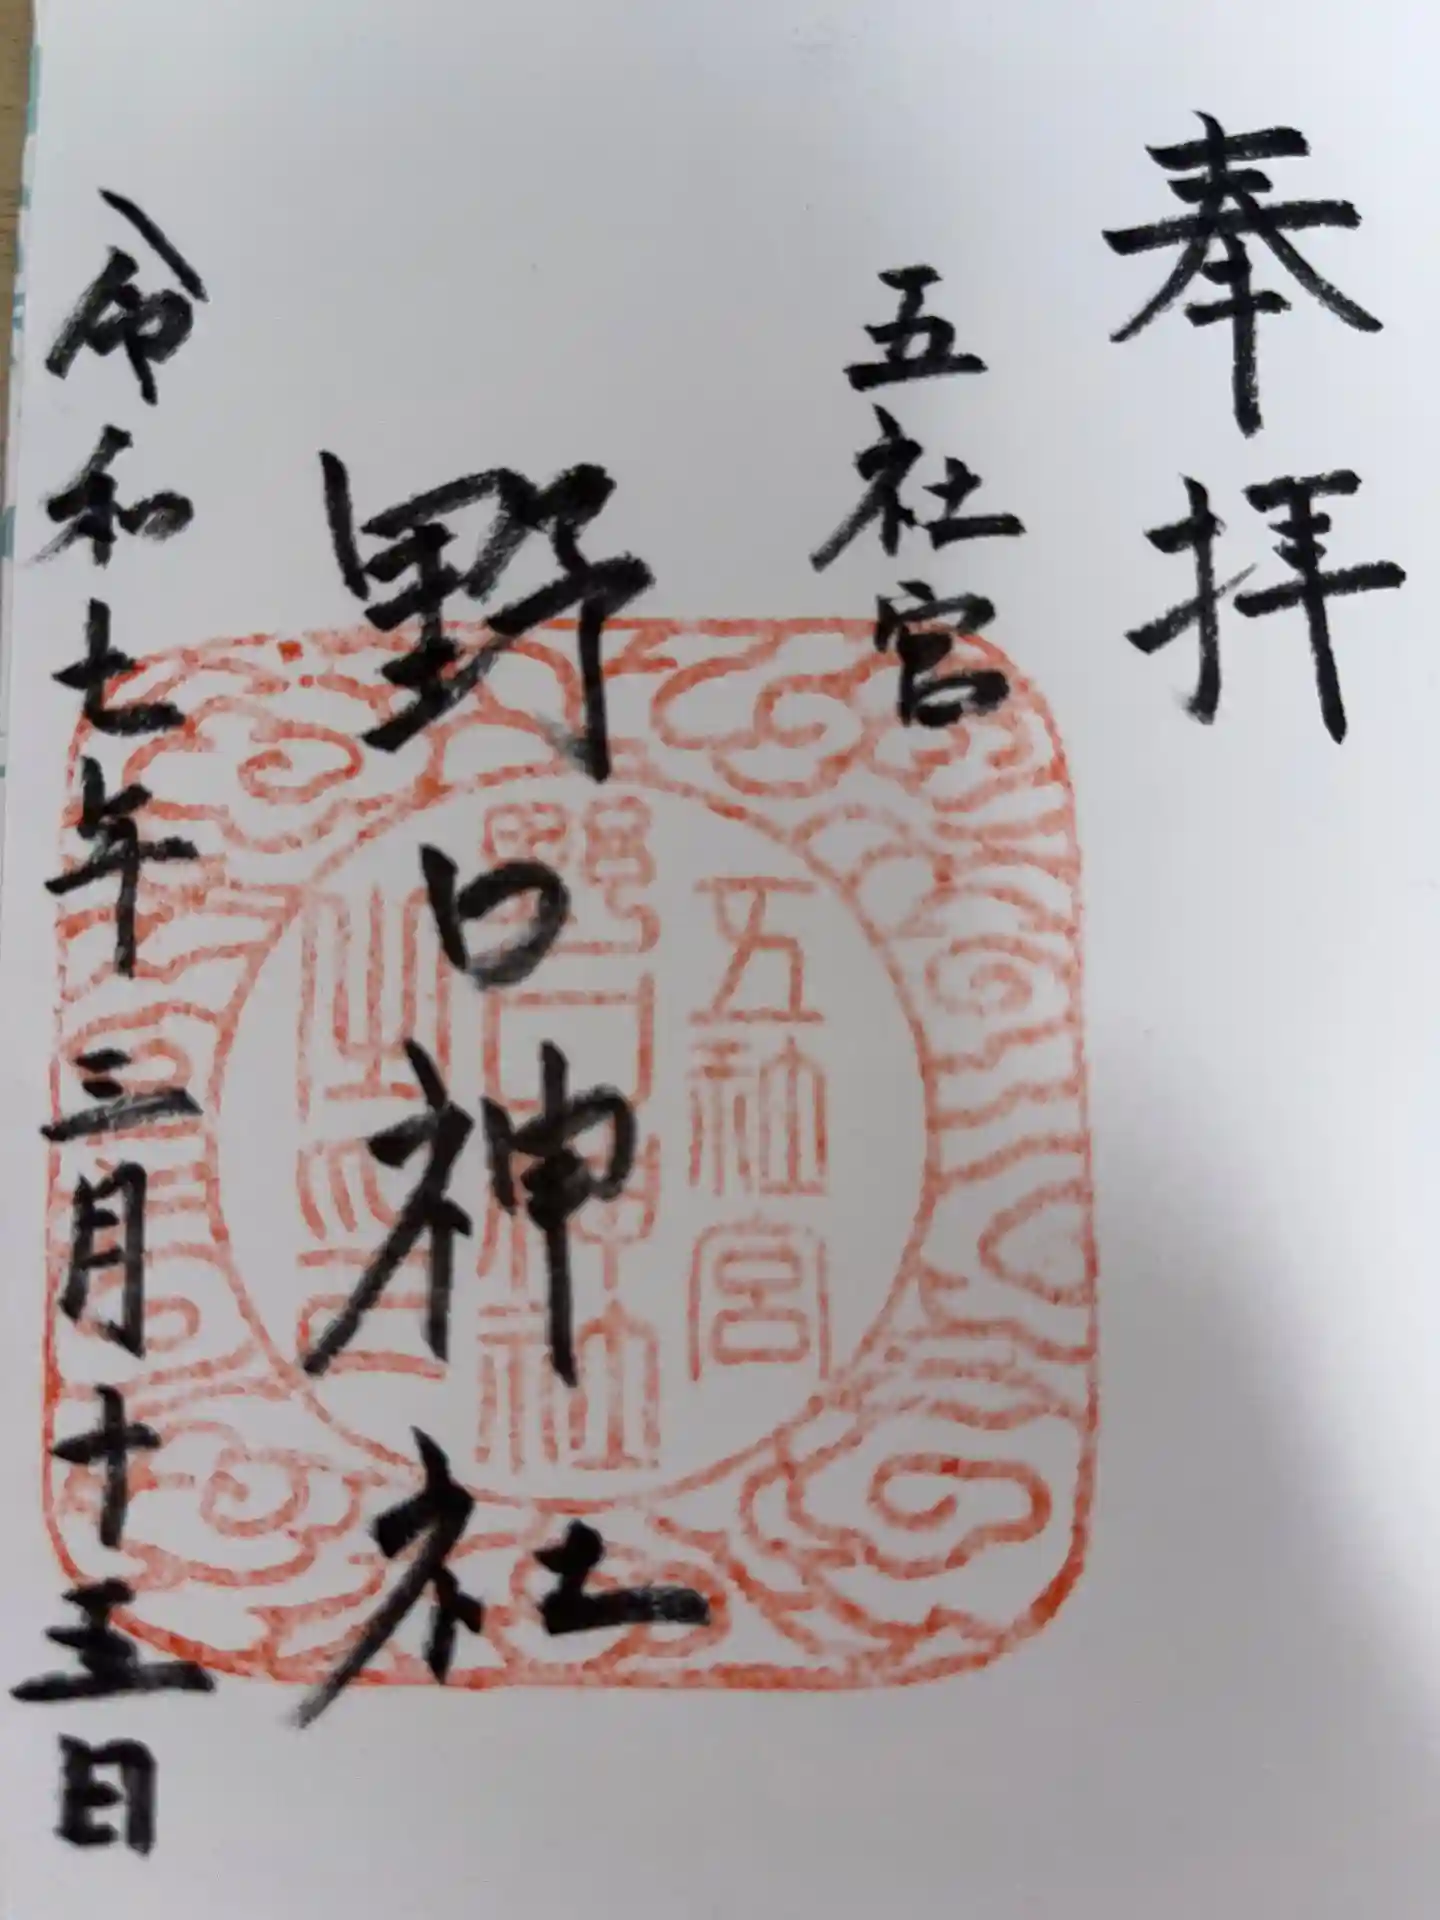 奉拝
五社宮
野口神社
令和七年三月十五日
五社宮
野口神社
之印